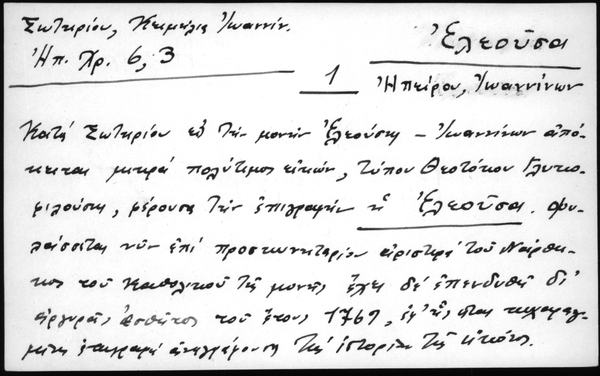 Σωτηρίου, Κειμήλια Ἰωαννίν.
Ἠπ. Χρ. 6, 3
Ἐλεοῦσα
1
Ἠπείρου, Ἰωαννίνων
Κατά Σωτηρίου εἰς τήν μονήν Ἐλεούσης – Ἰωαννίνων ἀπό-
κειται μικρά πολύτιμος εἰκών, τύπου Θεοτόκου Γλυκο-
φιλούσης, φέρουσα τήν ἐπιγραφήν ἡ Ἐλεοῦσα. φυ-
λάσσεται νῦν ἐπί προσκυνηταρίου ἀριστερά τοῦ Νάρθη-
κος τοῦ καθολικοῦ τῆς μονῆς ἔχει δέ ἐπενδυθῆ δι'
ἀργυρᾶς ἐσθῆτος τοῦ ἔτους 1769, ἐφ' ἧς κεχαραγ-
μένη ἐπιγραφή ἀναγράφουσα τήν ἱστορίαν τῆς εἰκόνος.